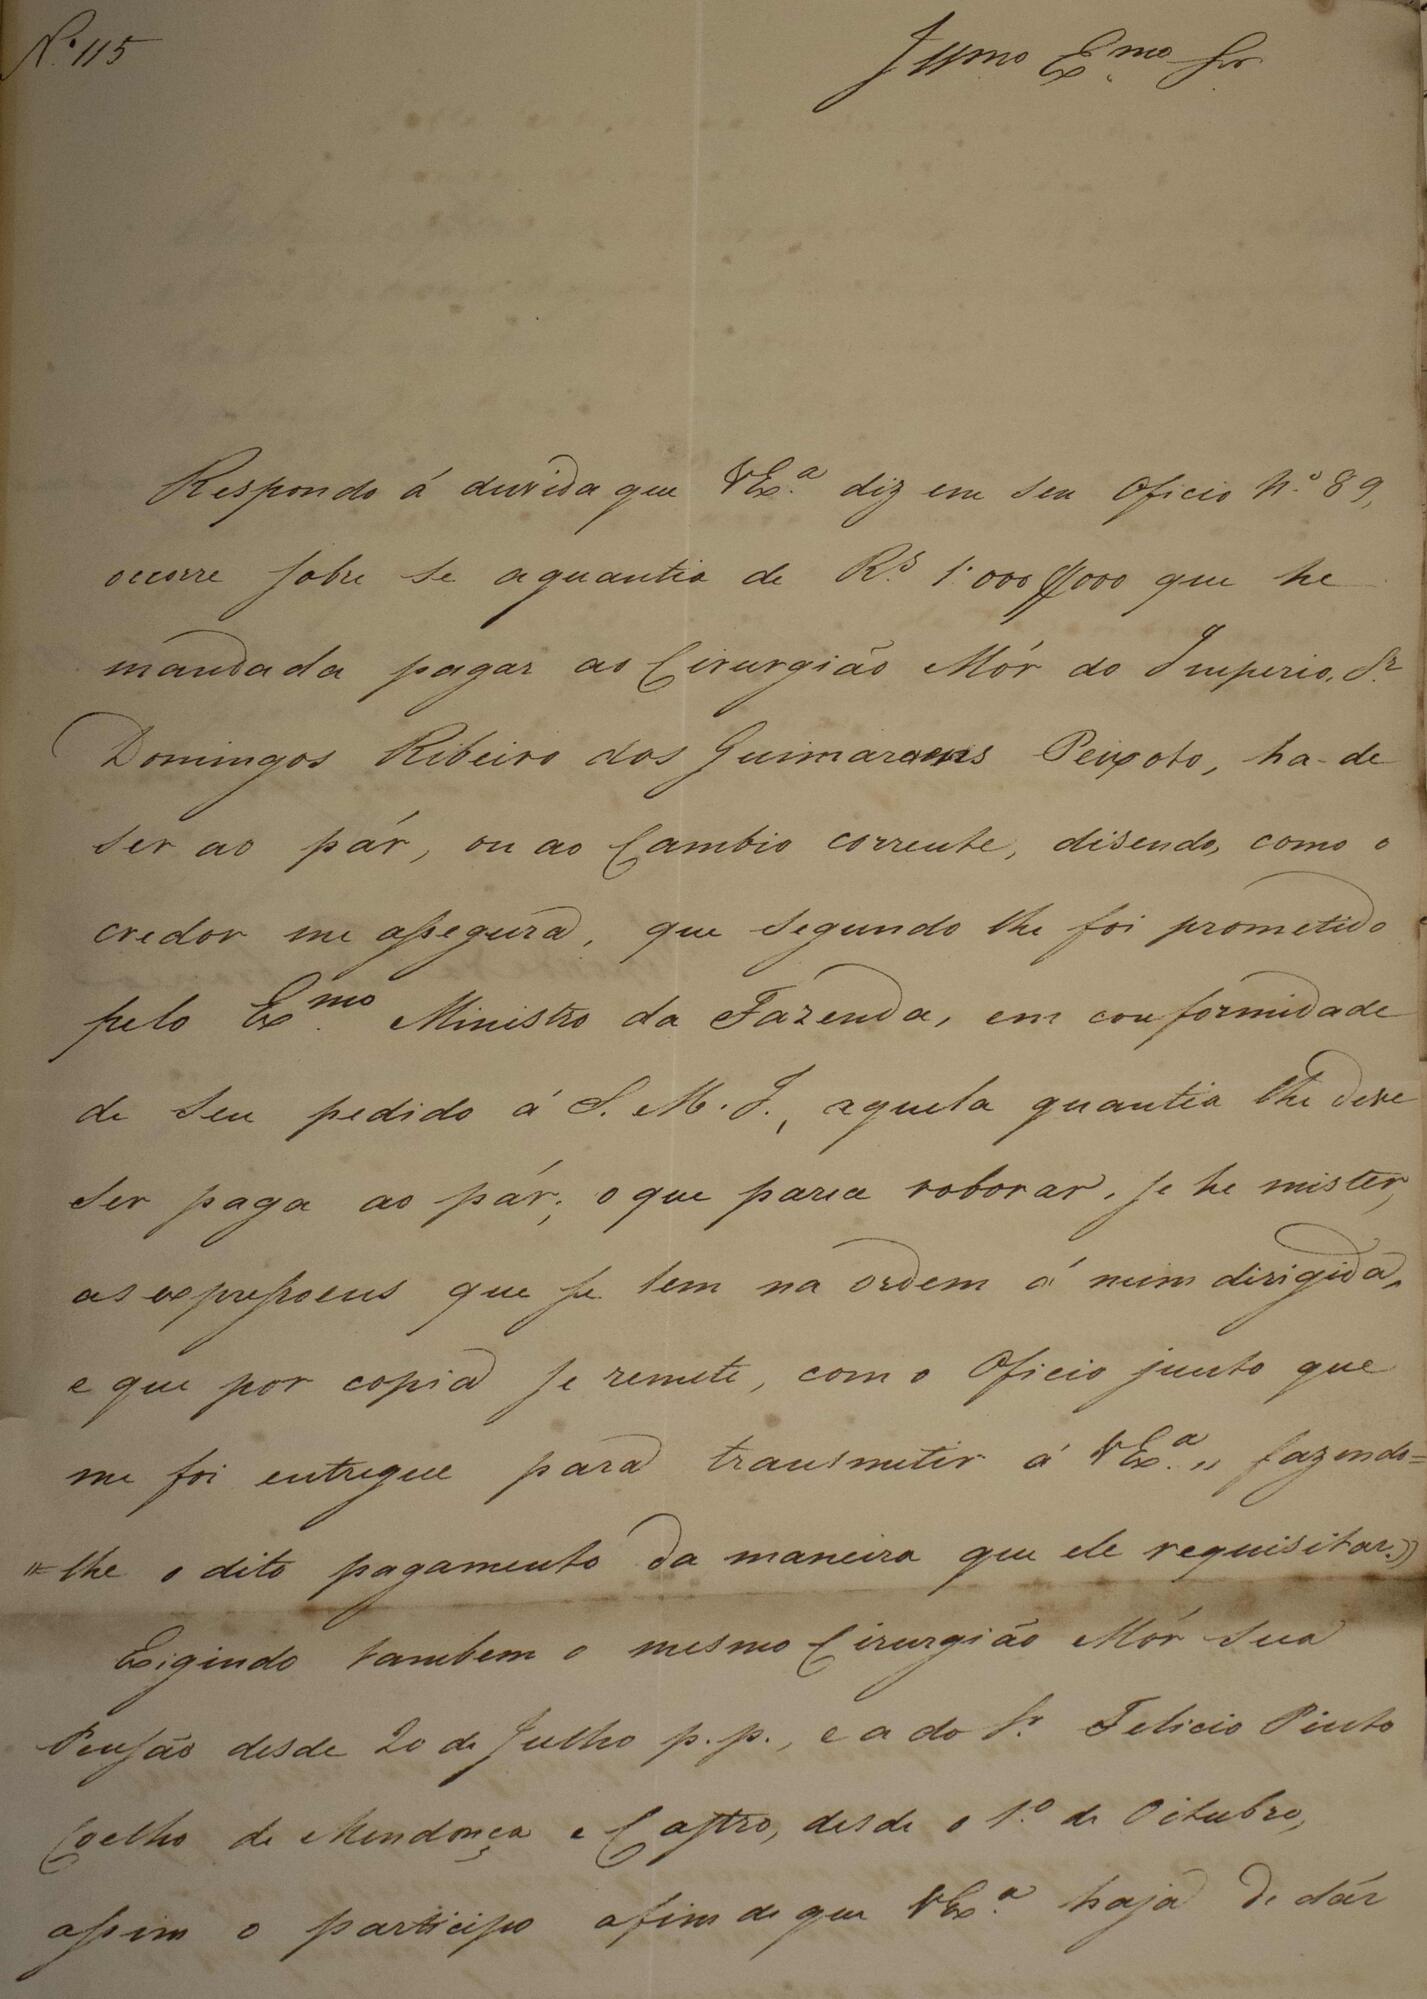 N.º 115
Illmo Exmo Snr
Respondo á duvida que VEx.ª diz em seu Oficio N.º 89,
occorre sobre se a quantia de R.s 1:000$000 que he
mandada pagar ao Cirurgião Mór do Imperio, Sr.
Domingos Ribeiro dos Guimaraens Peixoto, ha-de
ser ao pár, ou ao Cambio corrente, disendo, como o
credor me assegura, que segundo lhe foi prometido
pelo Ex.mo Ministro da Fazenda, em conformidade
de seu pedido á S. M. I., aquela quantia lhe deve
ser paga ao pár; o que para roborar, se he mister,
as expressoens que se tem na ordem á mim dirigida,
e que por copia se remete, com o Oficio junto que
me foi entregue para transmitir á VEx.ª „ fazendo=
"=lhe o dito pagamento da maneira que ele requisitar.»
Exigindo tambem o mesmo Cirurgião Mór sua
Pensão desde 20 de Julho p.p., e a do Sr. Felicio Pinto
Coelho de Mendonça e Castro, desde o 1.º de Oitubro,
assim o participo afim de que VEx.ª haja de dár